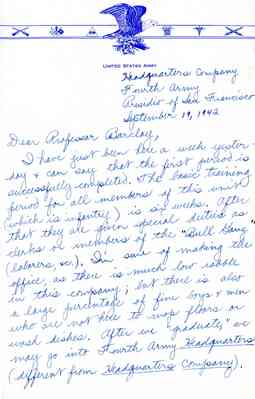 UNITED STATES ARMY
Headquarters Company
Fourth Army
Presidio of San Francisco
September 19, 1942
Dear Professor Barclay,
I have just been here a week yester-
day & can say that the first period is
successfully completed. The basic training
period for all members of this unit
(which is infantry) is six weeks. After
that they are given special duties as
clerks or members of the "Bull Gang"
(laborers, etc.). I'm sure of making the
office, as there is much low rabble
in this company; but there is also
a large percentage of fine boys & men
who are not here to mop floors or
wash dishes. After we "graduate," we
may go into Fourth Army Headquarters
(different from Headquarters Company).